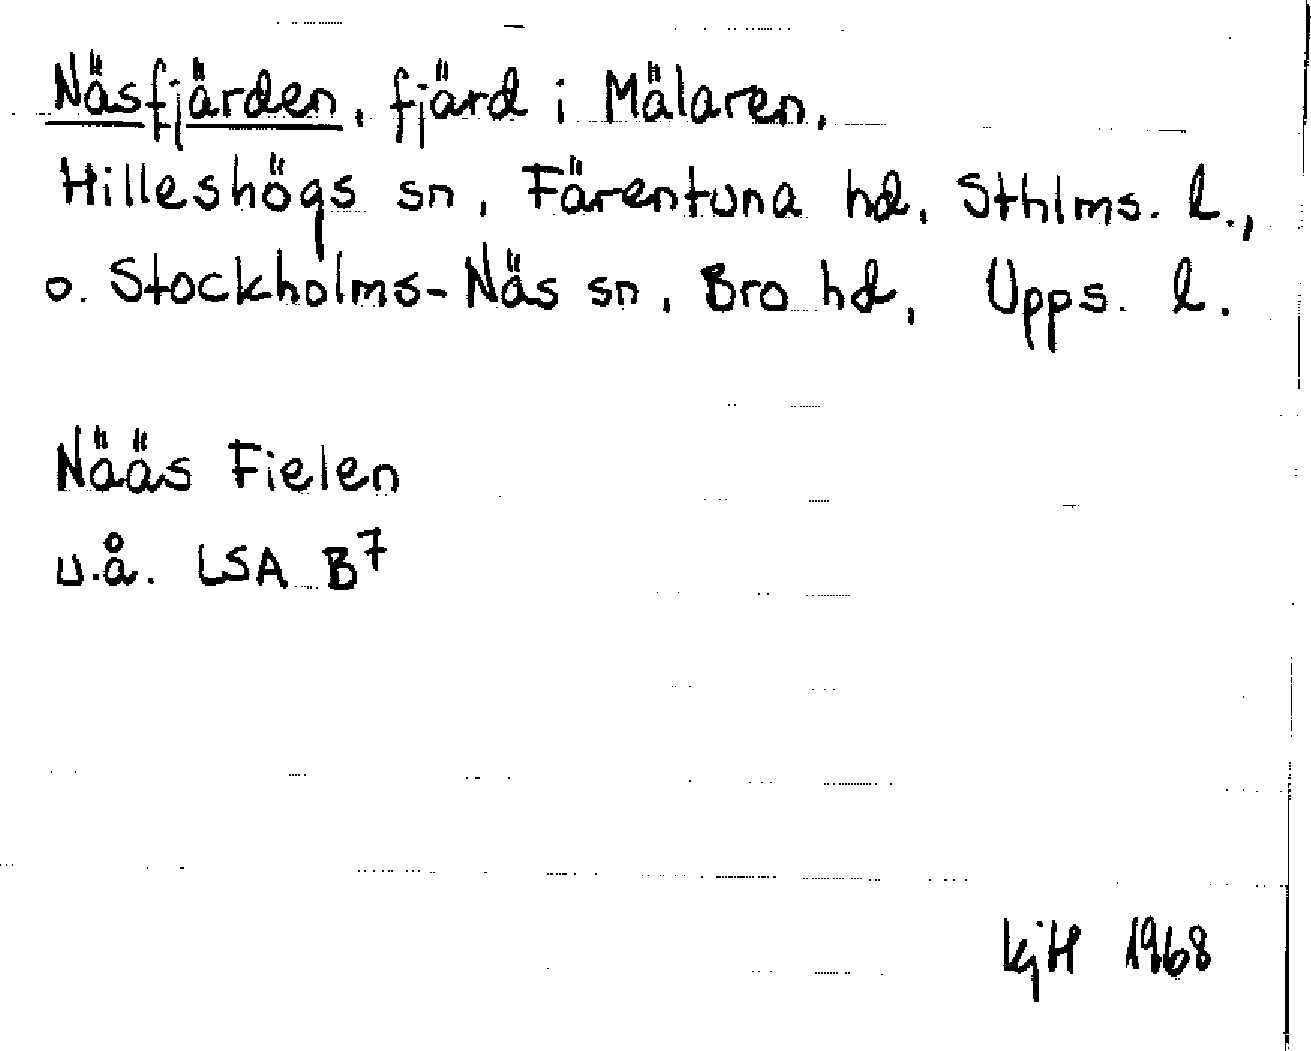 Näsfjärden, fjärd i Mälaren,
Hilleshögs sn, Färentuna hd, Sthlms. l.,
o. Stockholms-Näs sn, Bro hd, Upps. l.
Nääs Fielen
u.å. LSA B7
KjH 1968